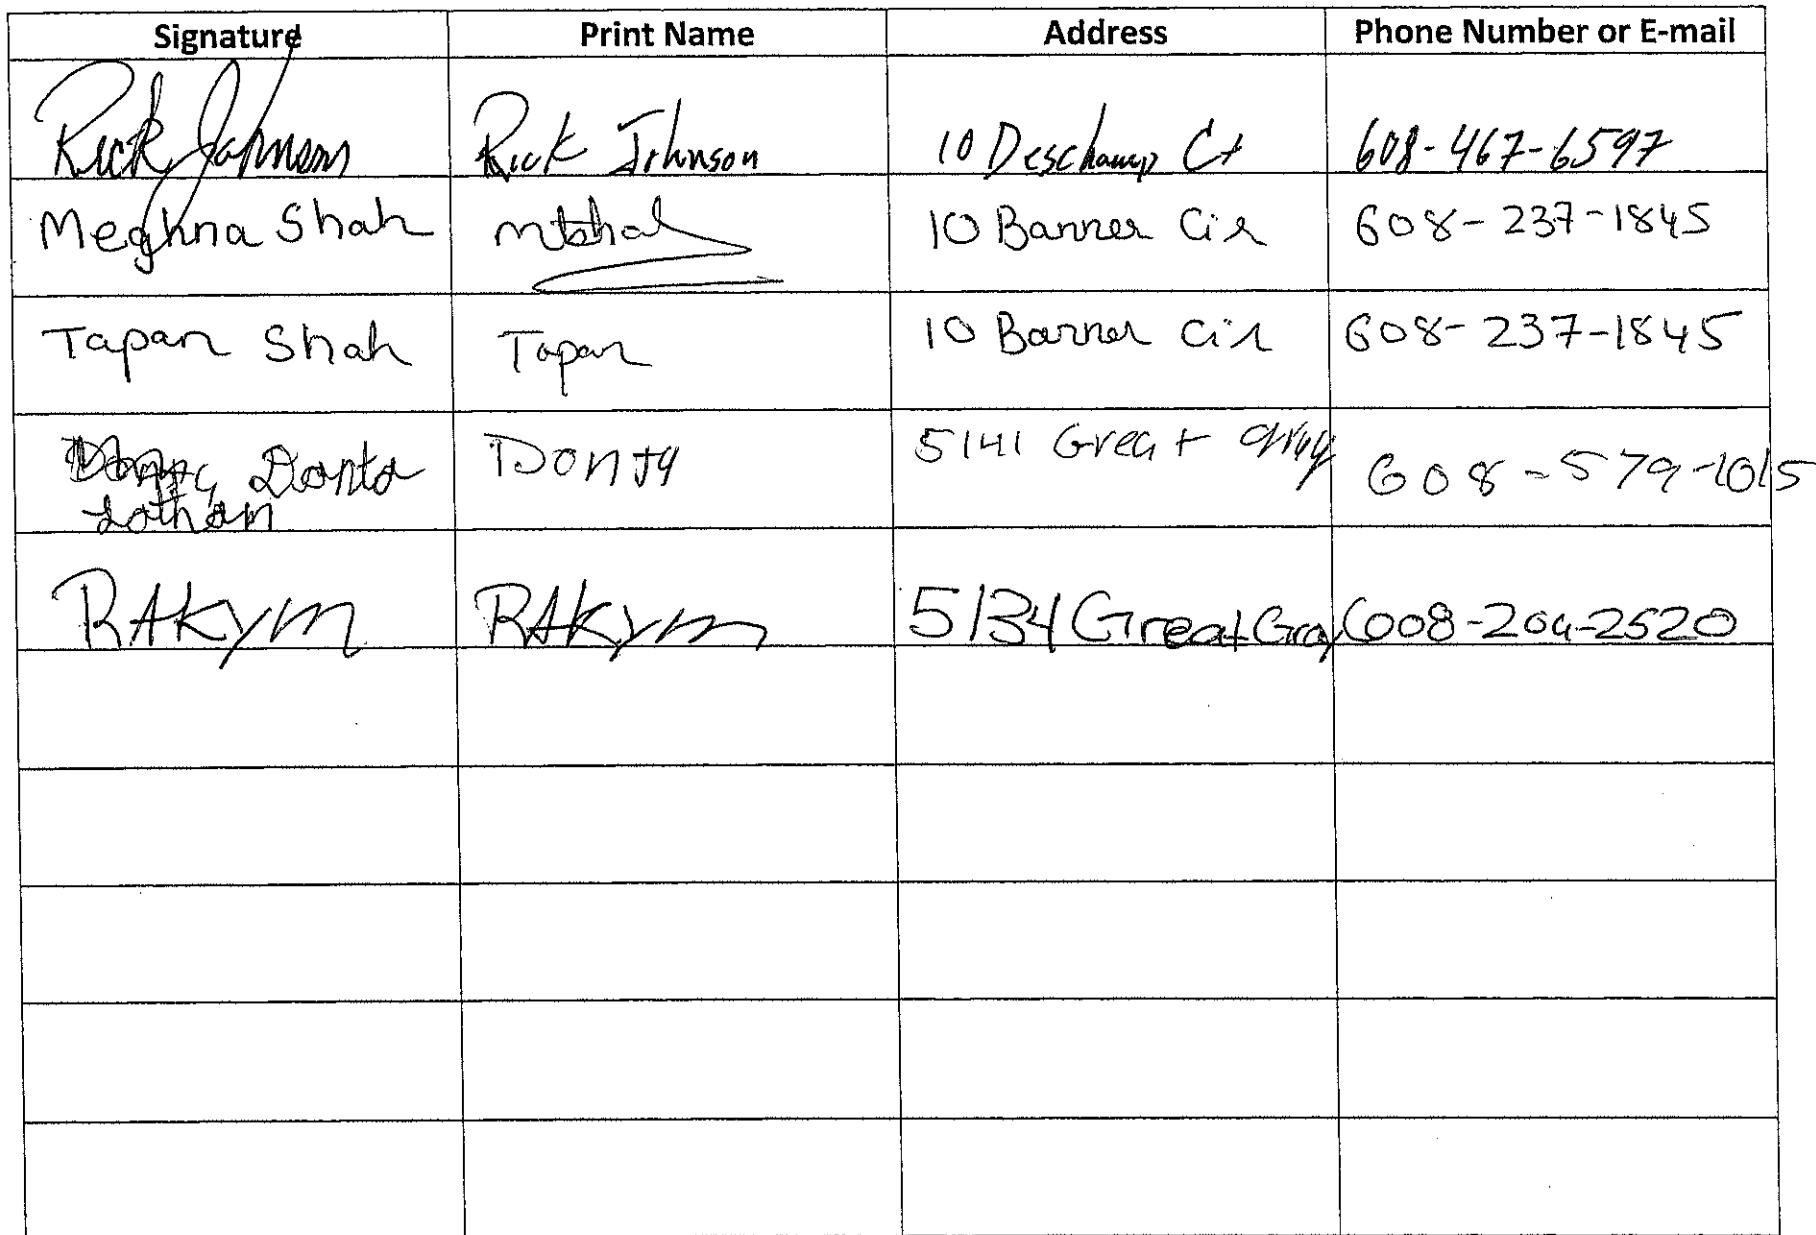 Signature Print Name Address Phone Number or E-mail
Rick Johnson Rick Johnson 10 Deschamp Ct 608-467-6597
Meghna Shah mtshah 10 Banner Cir 608-237-1845
Tapan Shah Tapan 10 Banner Cir 608-237-1845
Donta DonTa 5141 Great gray 608-579-1015
Lothan
RAKym RAKym 5134 Great Gray 608-204-2520